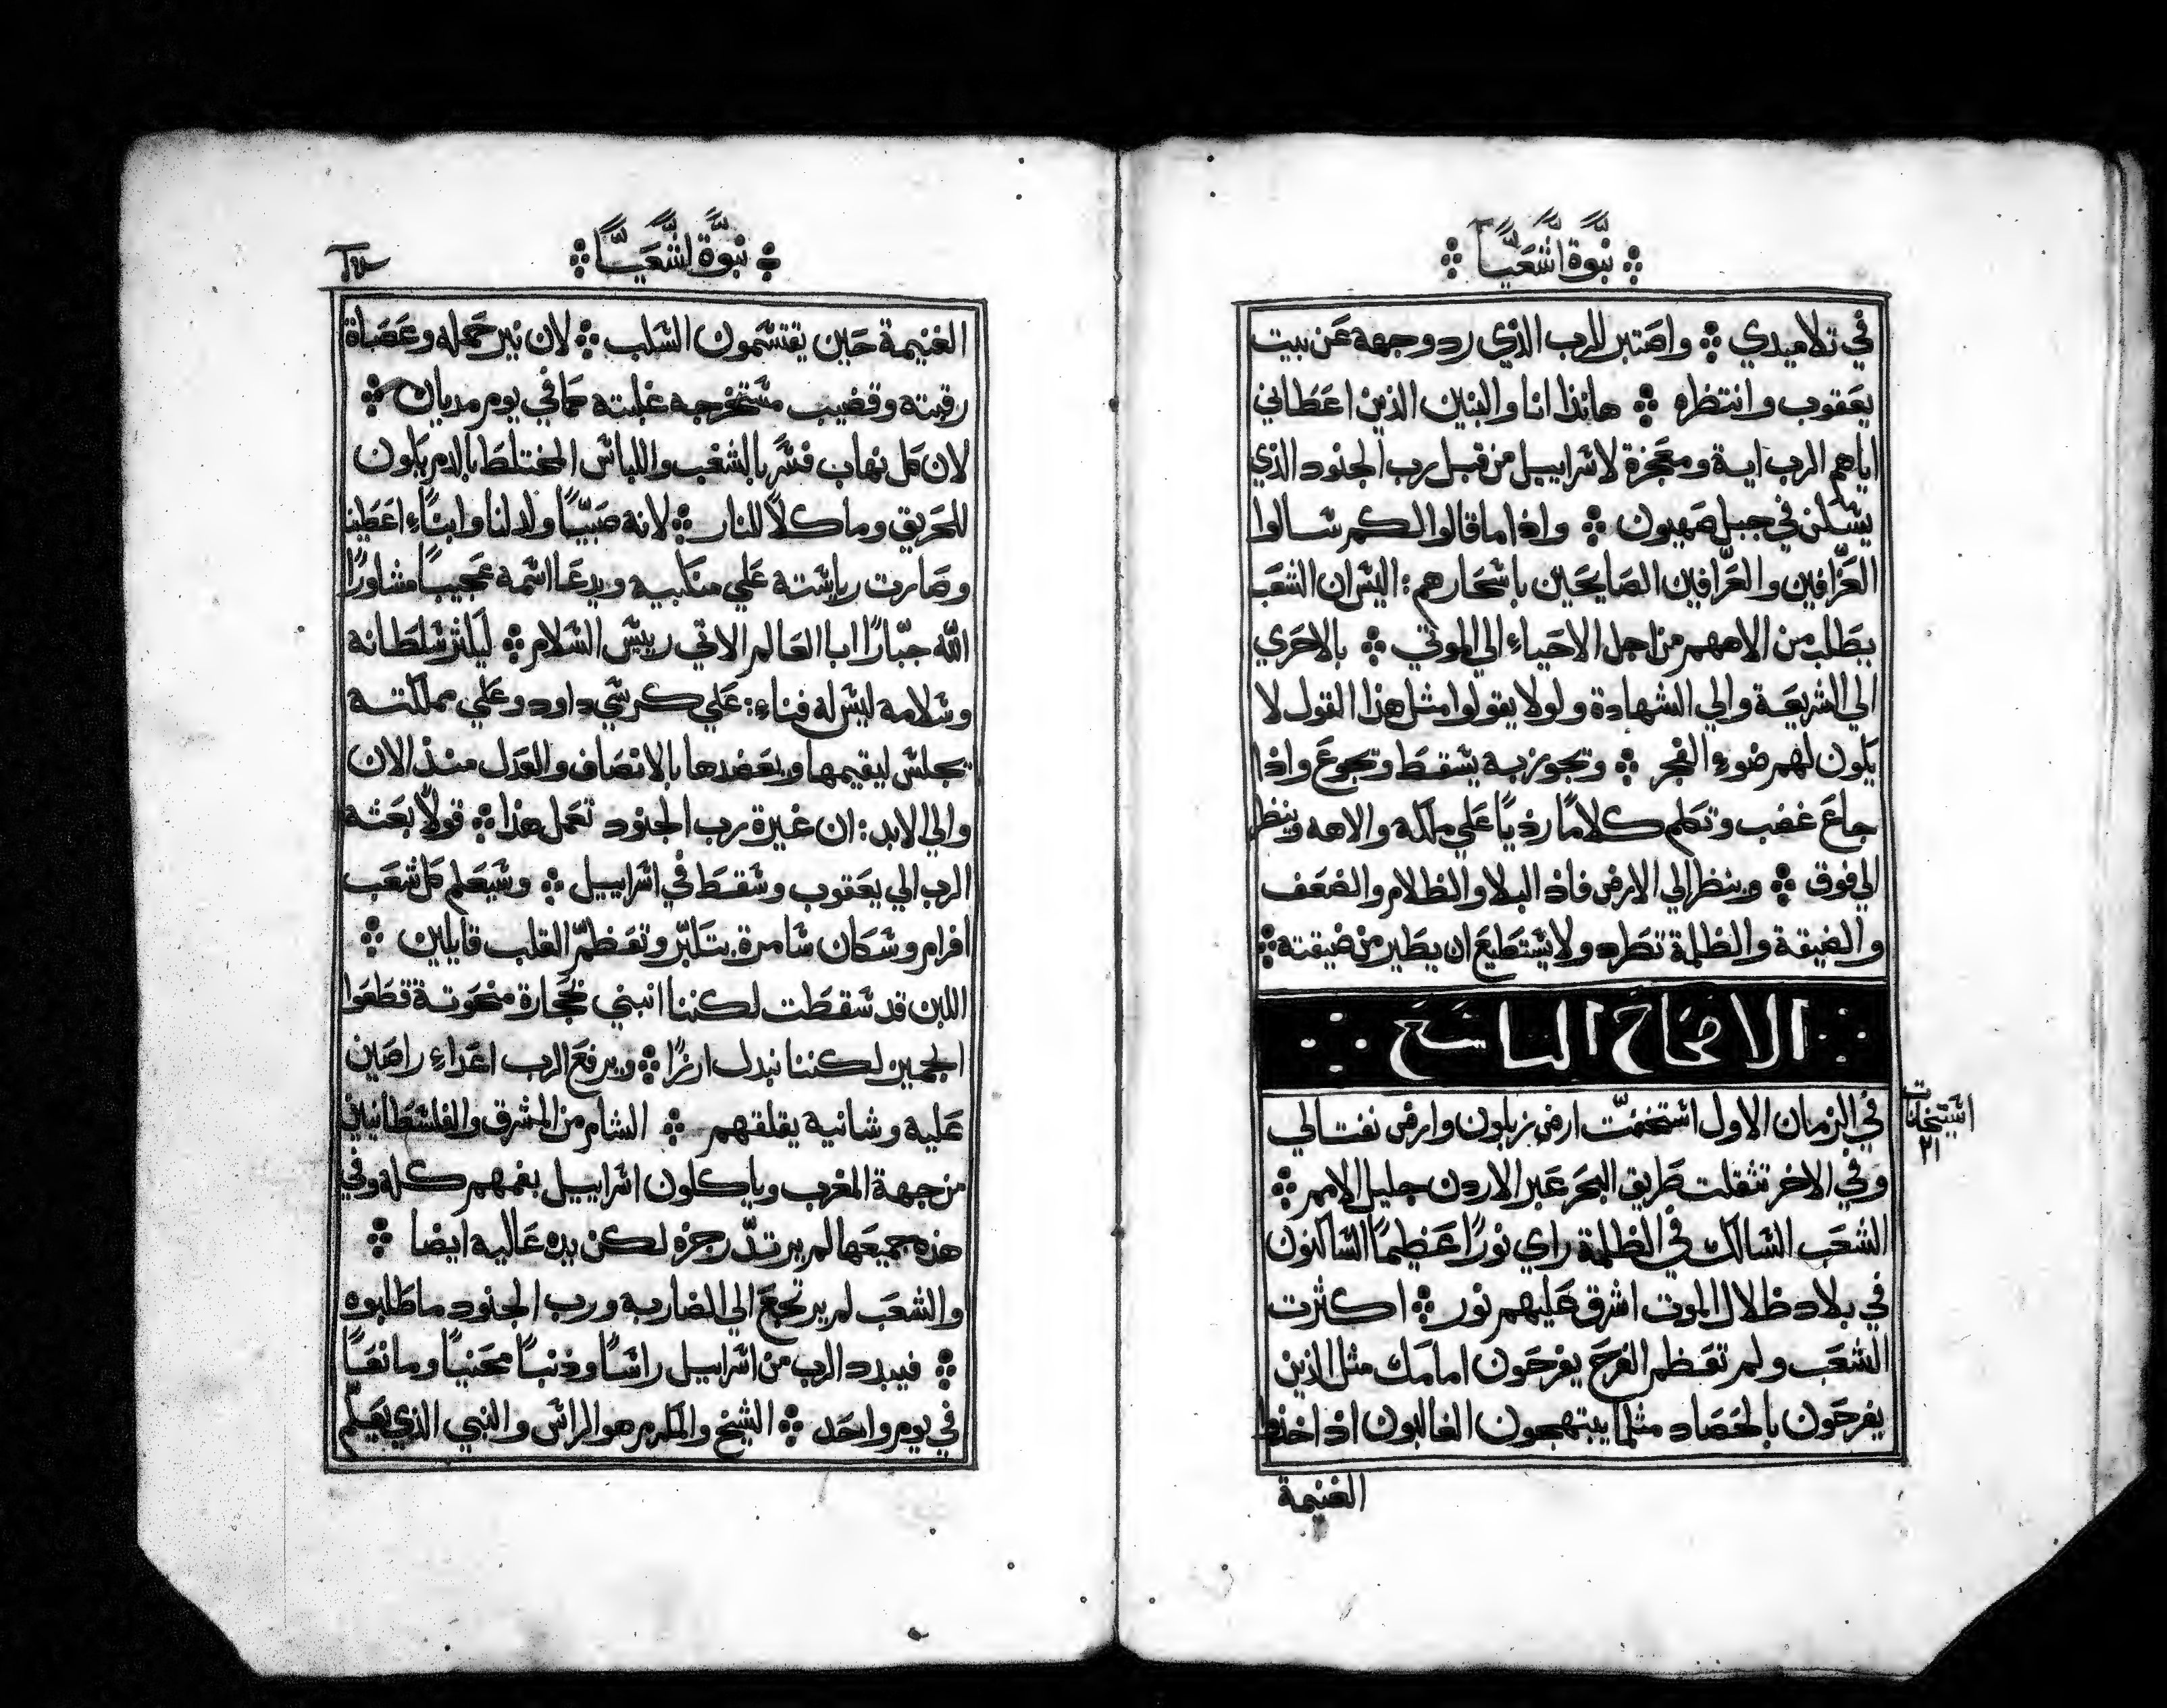 نبوة اشعيا
في تلاميدي واصتبر للرب الذي رد وجهه عن بيت
يعقوب وانتظره هانذا انا والبنين الذين اعطاني
اياهم الرب اية ومعجزة لاسراييل من قبل رب الجنود الذي
يسكن في جبل صهيون واذا ما قالوا لكم سالوا
العرافين والعرافين الصايحين باسحارهم : اليس ان الشعب
يطلب من الاههم من اجل الاحياء الي الموتي بالاحري
الي الشريعة والي الشهادة ولولا يقولوا مثل هذا القول لا
يكون لهم ضوء الفجر وتجوز به يسقط وتجوع واذا
جاع غضب وتكلم كلاما رديا علي ملكه والاهه وينظر
الي فوق وينظر الي الارض فاذ البلا والظلام والضعف
والضيقة والظلمة تطرد ولا يستطيع ان يطير من ضيقته
الاصحاح التاسع
في الزمان الاول استخفت ارض زبلون وارض نفتالي
وفي الاخر تثقلت طريق البحر عبر الاردن جليل الامم
الشعب السالك في الظلمة راي نورا عظيما الساكنون
في بلاد ظلال الموت اشرق عليهم نور اكثرت
الشعب ولم تعظم الفرح يفرحون امامك مثل الذين
يفرحون بالحصاد مثلما يبتهجون الغالبون اذ اخذوا
الغنيمة
٢١
نبوة اشعيا
الغنيمة حين يقتسمون السلب لان نير حمله وعصاة
رقبته وقضيب مستخرجه غلبته كما في يوم مديان
لان كل نهاب قسر بالشغب واللباس المختلط بالدم يكون
للحريق وماكلا للنار لانه صبيا ولد لنا وابناء اعطينا
وصارت رياسته علي منكبيه ويدعا اسمه عجيبا مشاورا
الله جبارا ابا العالم الاتي رييس السلام ليكثر سلطانه
وسلامه ليس له فناء : علي كرسي داود وعلي مملكته
تجلس ليقيمها ويعضدها بالانصاف والعدل منذ الان
والي الابد : ان غيرة رب الجنود تعمل هذا قولا بعثه
الرب الي يعقوب وسقط في اسراييل وسيعلم كل شعب
افرام وسكان سامرة بتكبر وتعظم القلب قايلين
اللبن قد سقطت لكننا انبني بحجارة منحوتة قطعوا
الجميز لكننا نبدل ارزا ويرفع الرب اعداء راصين
عليه وشانيه يقلقهم الشام من المشرق والفلسطانيين
من جهة المغرب وياكلون اسراييل بفمهم كله وفي
هذه جميعها لم يرتد رجزه لكن يده عاليه ايضا
والشعب لم يرتجع الي الضاربه ورب الجنود ما طلبوه
فيبدد الرب من اسراييل راسا وذنبا محنيا ومانعا
في يوم واحد الشيخ والمكرم هو الراس والنبي الذي يعلم